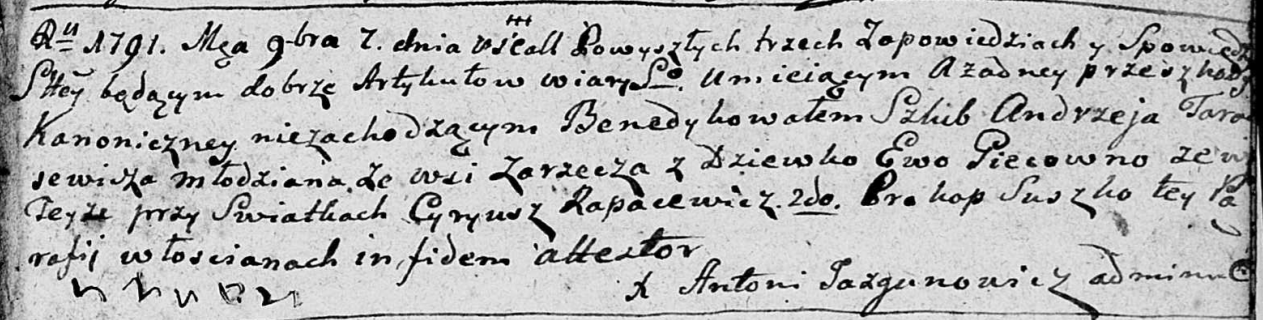 Ru 1791. Mca 9-bra 7. dnia Powyszłych trzech Zapowiedziach y Spowiedz
Sttey będącym dobrze Artykułow wiary So. Umieiącym A żadney przeszkodz
Kanoniczney niezachodzącym Benedykowałem Szlub Andrzeja Tara
sewicza młodziana ze wsi Zarzecza z Dziewko Ewo Piecowno ze w
Teyże przy Swiatkach Cyryusz Rapacewicz. 2do. Prokop Suszko tey Pa
rafij włoscianach in fidem attestor
X Antoni Jazgunowicz